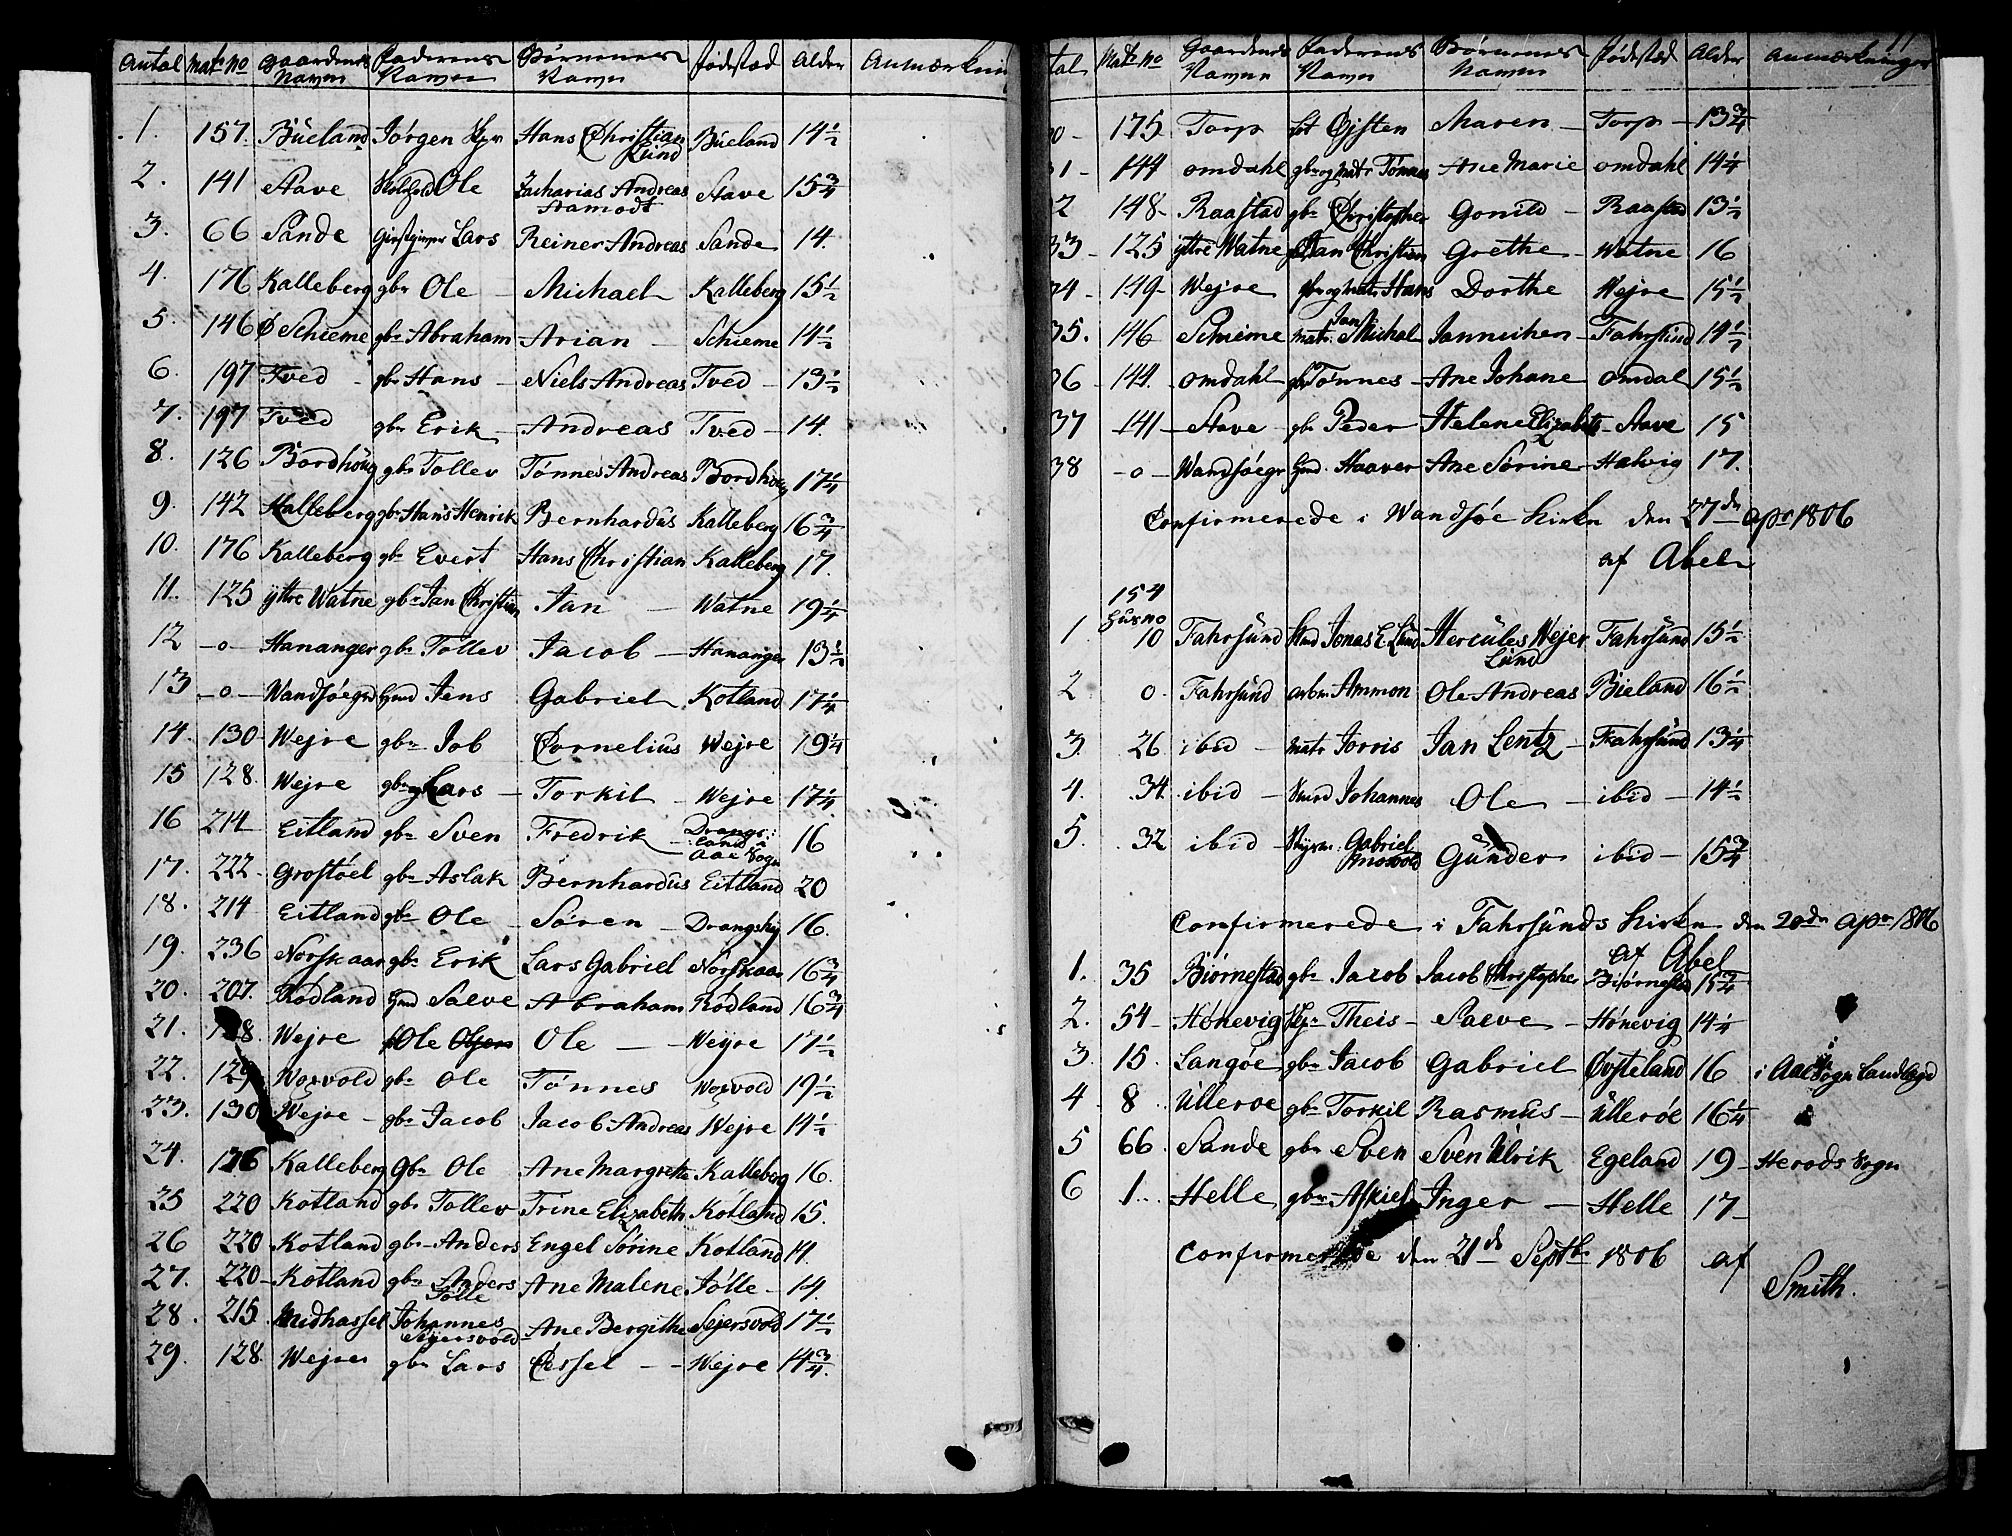 Antal Matr No Gaardenes Navne Faderens Navn Børnenes Navn Fødestæd Alder Anmærkning
1. 157. Büeland Jörgen Hans Christian Lund Büeland 14½
2. 141 Stave Ole Zacharias Andreas Aamodt Stave 15¾
3. 66 Sande Lars Reiner Andreas Sande 14.
4. 176 Kalleberg gbr Ole Michael Kalleberg 15½
5. 146 Ø Schieme gbr Abraham Arian Schieme 14½
6. 197 Tved gbr Hans Niels Andreas Tved 13½
7. 197 Tved gbr Erik Andreas Tved 14.
8. 126 Bordhöug gbr Tollev Tönnes Andreas Bordhöug 17¼
9. 142 Kalleberg gbr Hans Henrik Bernhardus Kalleberg 16¾
10. 176 Kalleberg gbr Evert Hans Christian Kalleberg 17.
11. 125 ÿttre Watne gbr Jan Christian Jan Watne 19¼
12 -o- Hananger gbr Tollev Jacob Hananger 13½
13 -o- Wandsöegrd Hmd Jens Gabriel Kotland 17¼
14. 130 Wejre gbr Job Cornelius Wejre 19¼
15 128. Wejre gbr Lars Torkil Wejre 17¼
16 214 Eitland gbr Sven Fredrik Drangsland i Aae Sogn 16
17. 222. Grostöel gbr Aslak Bernhardüs Eitland 20
18. 214 Eitland gbr Ole Sören 16.
19. 236 Norskaar gbr Erik Lars Gabriel Norskaar 16¾
20. 207. Rödland Hmd Saeve Abraham Rödland 16¾
21. 128. Wejre Ole Ole Weÿre 17½
22. 129 Woxvold gbr Ole Tönnes Woxvold 19½
23. 130 Wejre gbr Jacob Jacob Andreas Wejre 14½
24. 176 Kalleberg Gbr Ole Ane Margrethe Kalleberg 16.
25 220 Kotland gbr Tollev Trine Elizabeth Kotland 15.
26 220 Kotland gbr Anders Engel Sörine Kotland 14.
27. 220 Kotland gbr Anders Jölle Ane Malene Jölle 14.
28. 215. Midhassel Johannes Sejersvold Ane Bergithe Sejersvold 17½
29. 128. Wejre gbr Lars Cissel Wejre 14¾
11
tal Matr No Gaardenes Navne Faderens Navn Børnenes Navne Fødestæd Alder Anmærkninger
0 175 Torp Öjsten Maren Torp 13¾
31 144 omdahl gbr og matr Tönnes Ane Marie omdahl 14¼
2 148 Raastad gbr Christopher Gonild Raastad 13½
33 125 ÿttre Watne Jan Christian Grethe Watne 16
34 149 Wejre gbr og matr Hans Dorthe Wejre 15½
35. 146 Schieme matr. Jan Michel Jannichen Fahrsünd 14½
36 144. omdahl gbr Tönnes Ane Johane omdal 15½
37 141 Stave gbr Peder Helene Elizabeth Stave 15
38 -o- Wandsöegr Hmd. Haaver Ane Sörine Halvig 17.
Confirmerede i Wandsöe Kirke den 27de Apr 1806
af Abel
154 Huus no
1 10 Fahrsünd Jonas L. Lund Hercüles Wejer Lünd Fahrsünd 15½
2 0. Fahrsünd arbm Ammon Ole Andreas Büeland 16½
3. 26 ibid matr Jorris Jan Lentz Fahrsünd 13¼
4. 34. ibid Johannes Ole ibid 14½
5. 32 ibid Styrm. Gabriel Günder ibid 15¾
Confirmerede i Fahrsünds Kirke den 20de Apr 1806
af Abel
1. 35 Biörnestad gbr Jacob Jacob Christopher Biörnestad 15¾
2. 54 Hönevig Theis Saeve Hönevig 14¼
3. 15. Langöe gbr Jacob Gabriel Övsteland 16 i Aae Sogn
4 8 Ülleröe gbr Torkil Rasmus Ülleröe 16¼
5 66. Sande gbr Sven Sven Ulrik Egeland 19 Herads Sogn
6 1. Helle gbr Askiel Inger Helle 17
Confirmerede den 21de Septbr 1806 af
Smith.